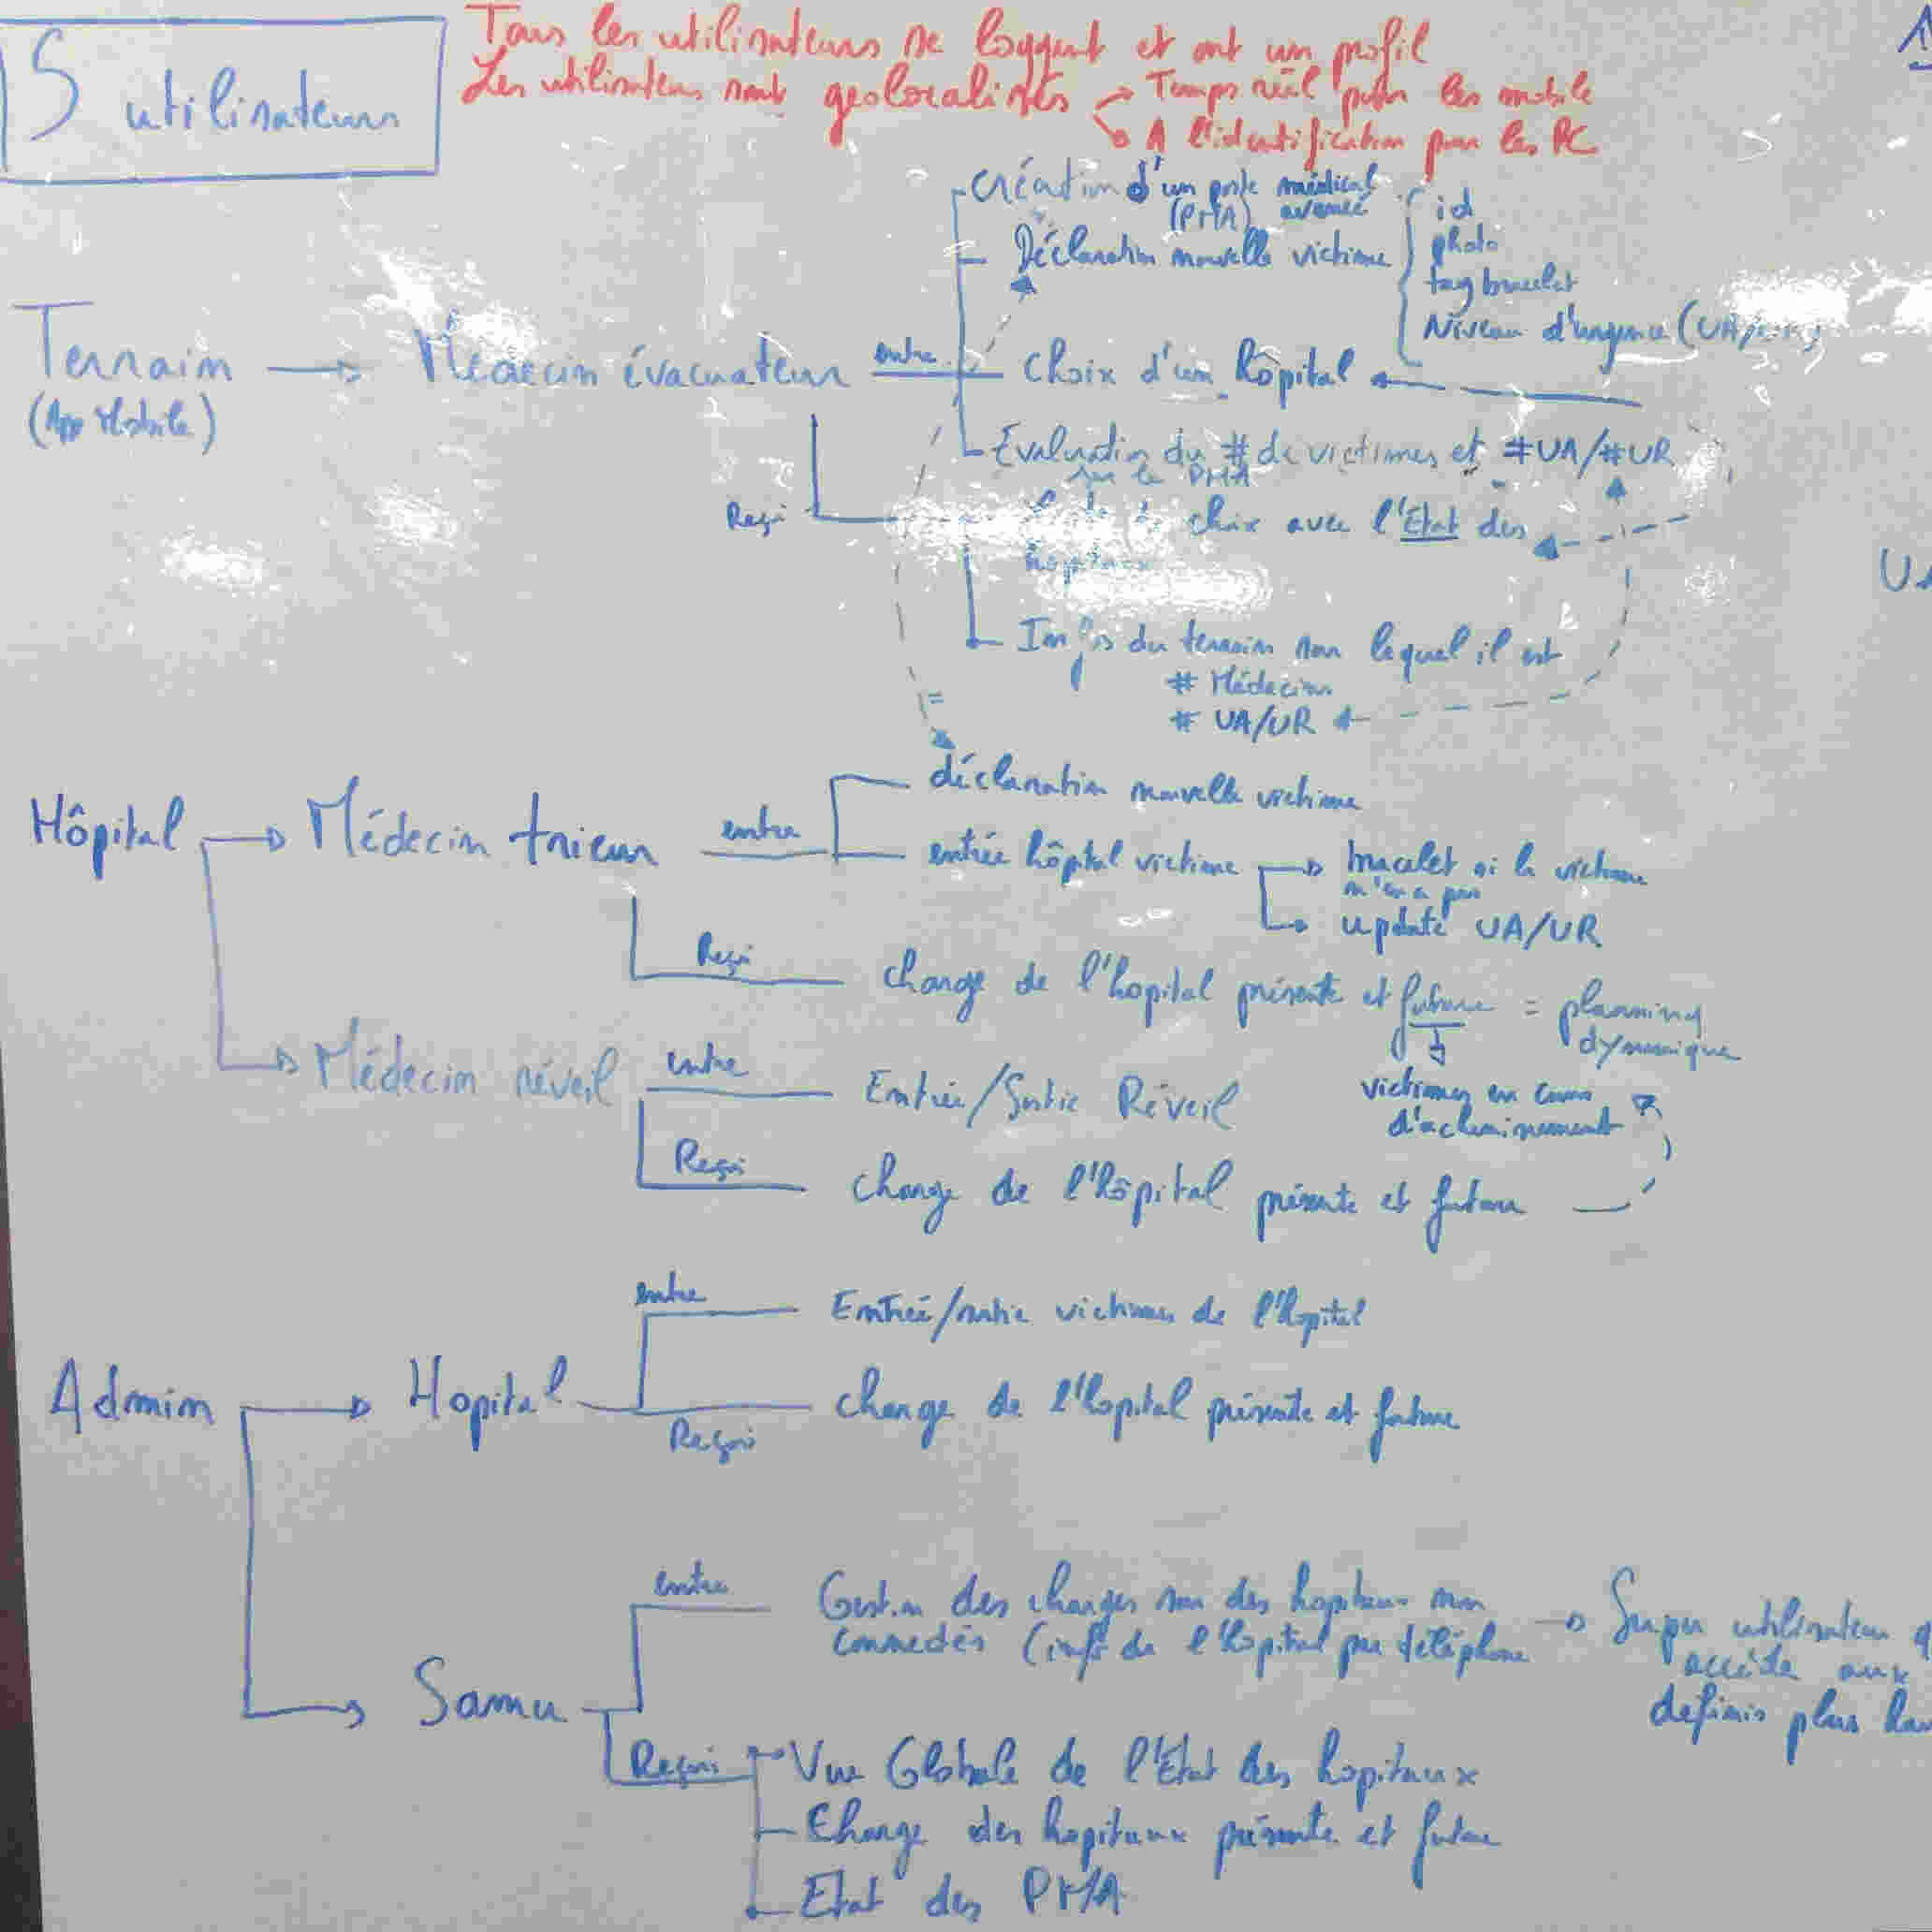 5 utilisateurs
Tous les utilisateurs se loggent et ont un profil
Les utilisateurs sont geolocalisés → Temps réel pour les mobile
→ A l'identification pour les PC
création d'un poste médical
(PMA) avancé
Déclaration nouvelle victime
id
photo
tag bracelet
Niveau d'urgence (UA/
Terrain → Médecin évacuateur
(App Mobile)
entre
choix d'un hôpital
Evaluation du # de victimes et #UA/#UR
sur le PMA
Reçi
choix avec l'Etat des
hopitaux
Infos du terrain sur lequel il est
# Médecins
# UA/UR
=
Hôpital → Médecin trieur
entre
déclaration nouvelle victime
entrée hôpital victime → bracelet si la victime
n'en a pas
→ update UA/UR
Reçi
charge de l'hopital présente et future = planning
dynamique
victimes en cours
d'acheminement
→ Médecin réveil
entre
Entrée/Sortie Réveil
Reçi
charge de l'hôpital présente et future
Admin → Hopital
entre
Entrée/sortie victimes de l'hopital
Reçoi
charge de l'hopital présente et future
→ Samu
entre
Gestion des charges sur des hopitaux non
connectés (info de l'hôpital par téléphone → Super utilisateur q
accède aux
définis plus hau
Reçoi
Vue Globale de l'Etat des hopitaux
Charge des hopitaux présente et future
Etat des PMA